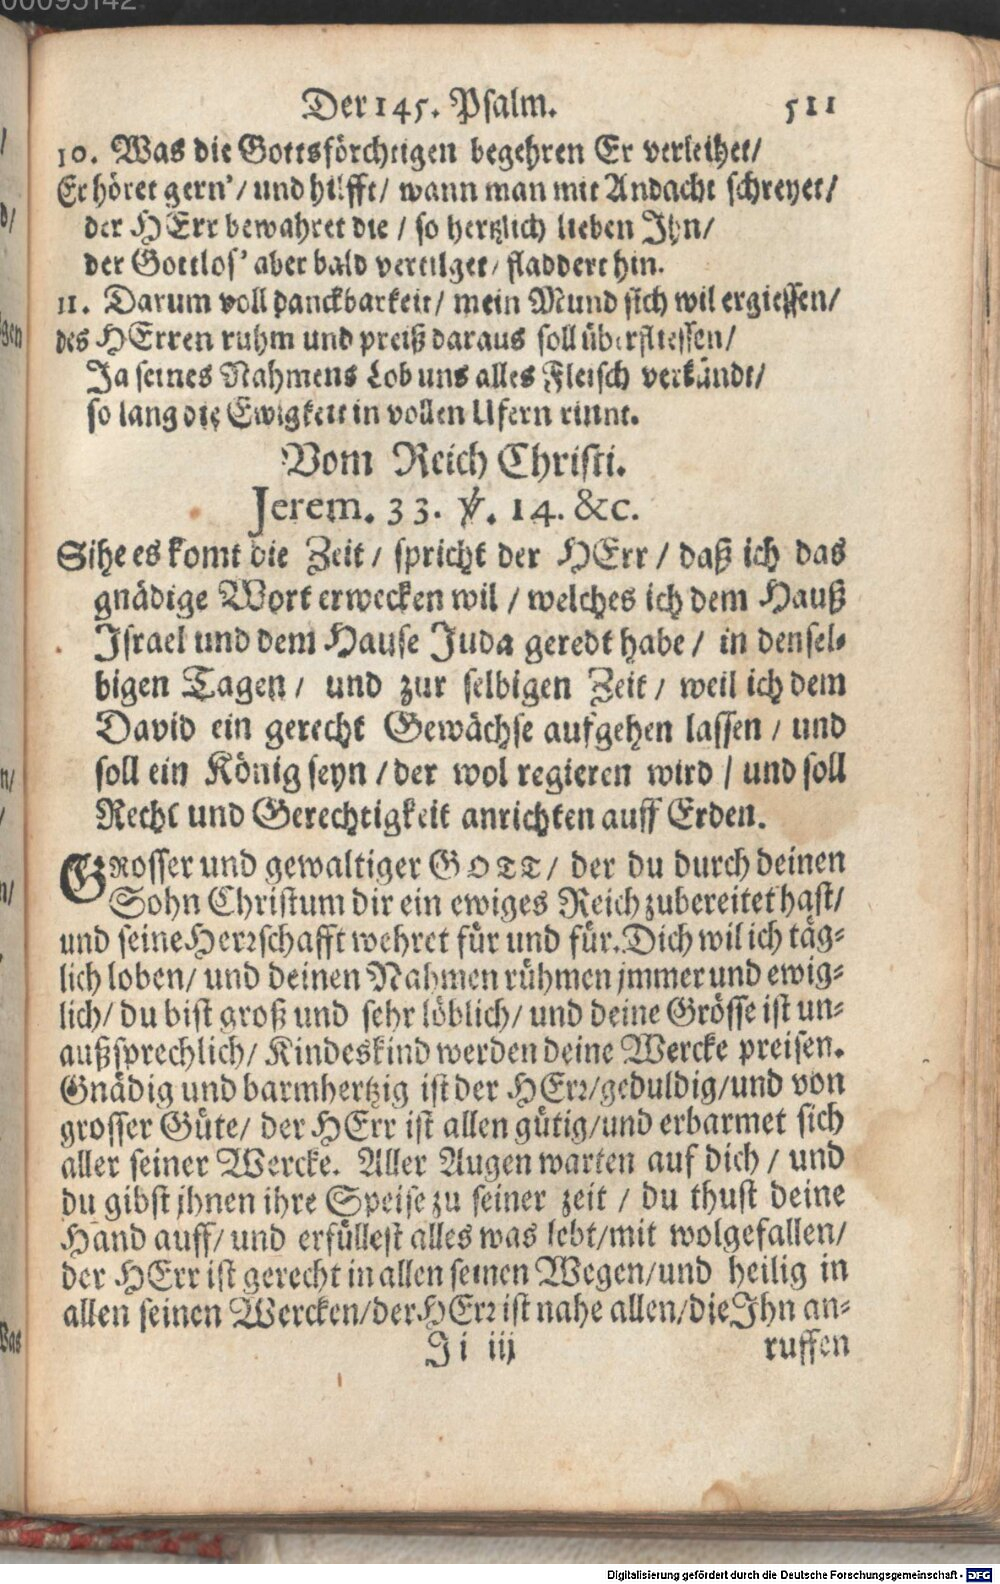 Der 145. Psalm. 511
10. Was die Gottsförchtigen begehren Er verleihet/
Er höret gern'/ und hilfft/ wann man mit Andacht schreyet/
der HErr bewahret die / so hertzlich lieben Ihn/
der Gottlos' aber bald vertilget/ fladdert hin.
11. Darum voll danckbarkeit/ mein Mund sich wil ergiessen/
des HErren ruhm und preiß daraus soll überfliessen/
Ja seines Nahmens Lob uns alles Fleisch verkündt/
so lang die Ewigkeit in vollen Ufern rinnt.
Vom Reich Christi.
Jerem. 33. ℣. 14. &c.
Sihe es komt die Zeit / spricht der HErr / daß ich das
gnädige Wort erwecken wil / welches ich dem Hauß
Israel und dem Hause Juda geredt habe / in densel-
bigen Tagen / und zur selbigen Zeit / weil ich dem
David ein gerecht Gewächse aufgehen lassen / und
soll ein König seyn / der wol regieren wird / und soll
Recht und Gerechtigkeit anrichten auff Erden.
GRosser und gewaltiger GOTT / der du durch deinen
Sohn Christum dir ein ewiges Reich zubereitet hast/
und seine Herrschafft wehret für und für. Dich wil ich täg-
lich loben/ und deinen Nahmen rühmen jmmer und ewig-
lich/ du bist groß und sehr löblich/ und deine Grösse ist un-
außsprechlich/ Kindeskind werden deine Wercke preisen.
Gnädig und barmhertzig ist der HErr/geduldig/und von
grosser Güte/ der HErr ist allen gütig/und erbarmet sich
aller seiner Wercke. Aller Augen warten auf dich / und
du gibst jhnen ihre Speise zu seiner zeit / du thust deine
Hand auff/ und erfüllest alles was lebt/mit wolgefallen/
der HErr ist gerecht in allen seinen Wegen/und heilig in
allen seinen Wercken/der HErr ist nahe allen/die Ihn an-
Ji iij ruffen
Digitalisierung gefördert durch die Deutsche Forschungsgemeinschaft - DFG